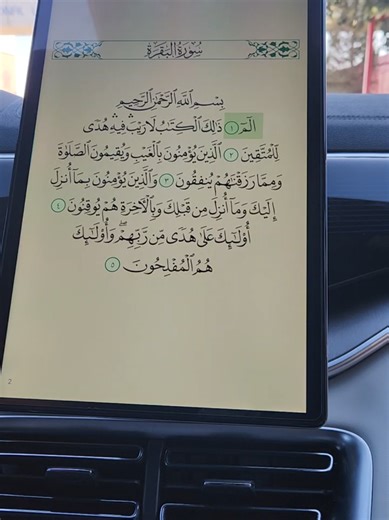 سُورَةُ البَقَرَةِ
بِسْمِ اللَّهِ الرَّحْمَٰنِ الرَّحِيمِ
الٓمٓ ١ ذَٰلِكَ الْكِتَٰبُ لَا رَيْبَ ۛ فِيهِ ۛ هُدًى
لِّلْمُتَّقِينَ ٢ الَّذِينَ يُؤْمِنُونَ بِالْغَيْبِ وَيُقِيمُونَ الصَّلَوٰةَ
وَمِمَّا رَزَقْنَٰهُمْ يُنفِقُونَ ٣ وَالَّذِينَ يُؤْمِنُونَ بِمَا أُنزِلَ
إِلَيْكَ وَمَا أُنزِلَ مِن قَبْلِكَ وَبِالْآخِرَةِ هُمْ يُوقِنُونَ ٤
أُو۟لَٰٓئِكَ عَلَىٰ هُدًى مِّن رَّبِّهِمْ ۖ وَأُو۟لَٰٓئِكَ
هُمُ الْمُفْلِحُونَ ٥
2